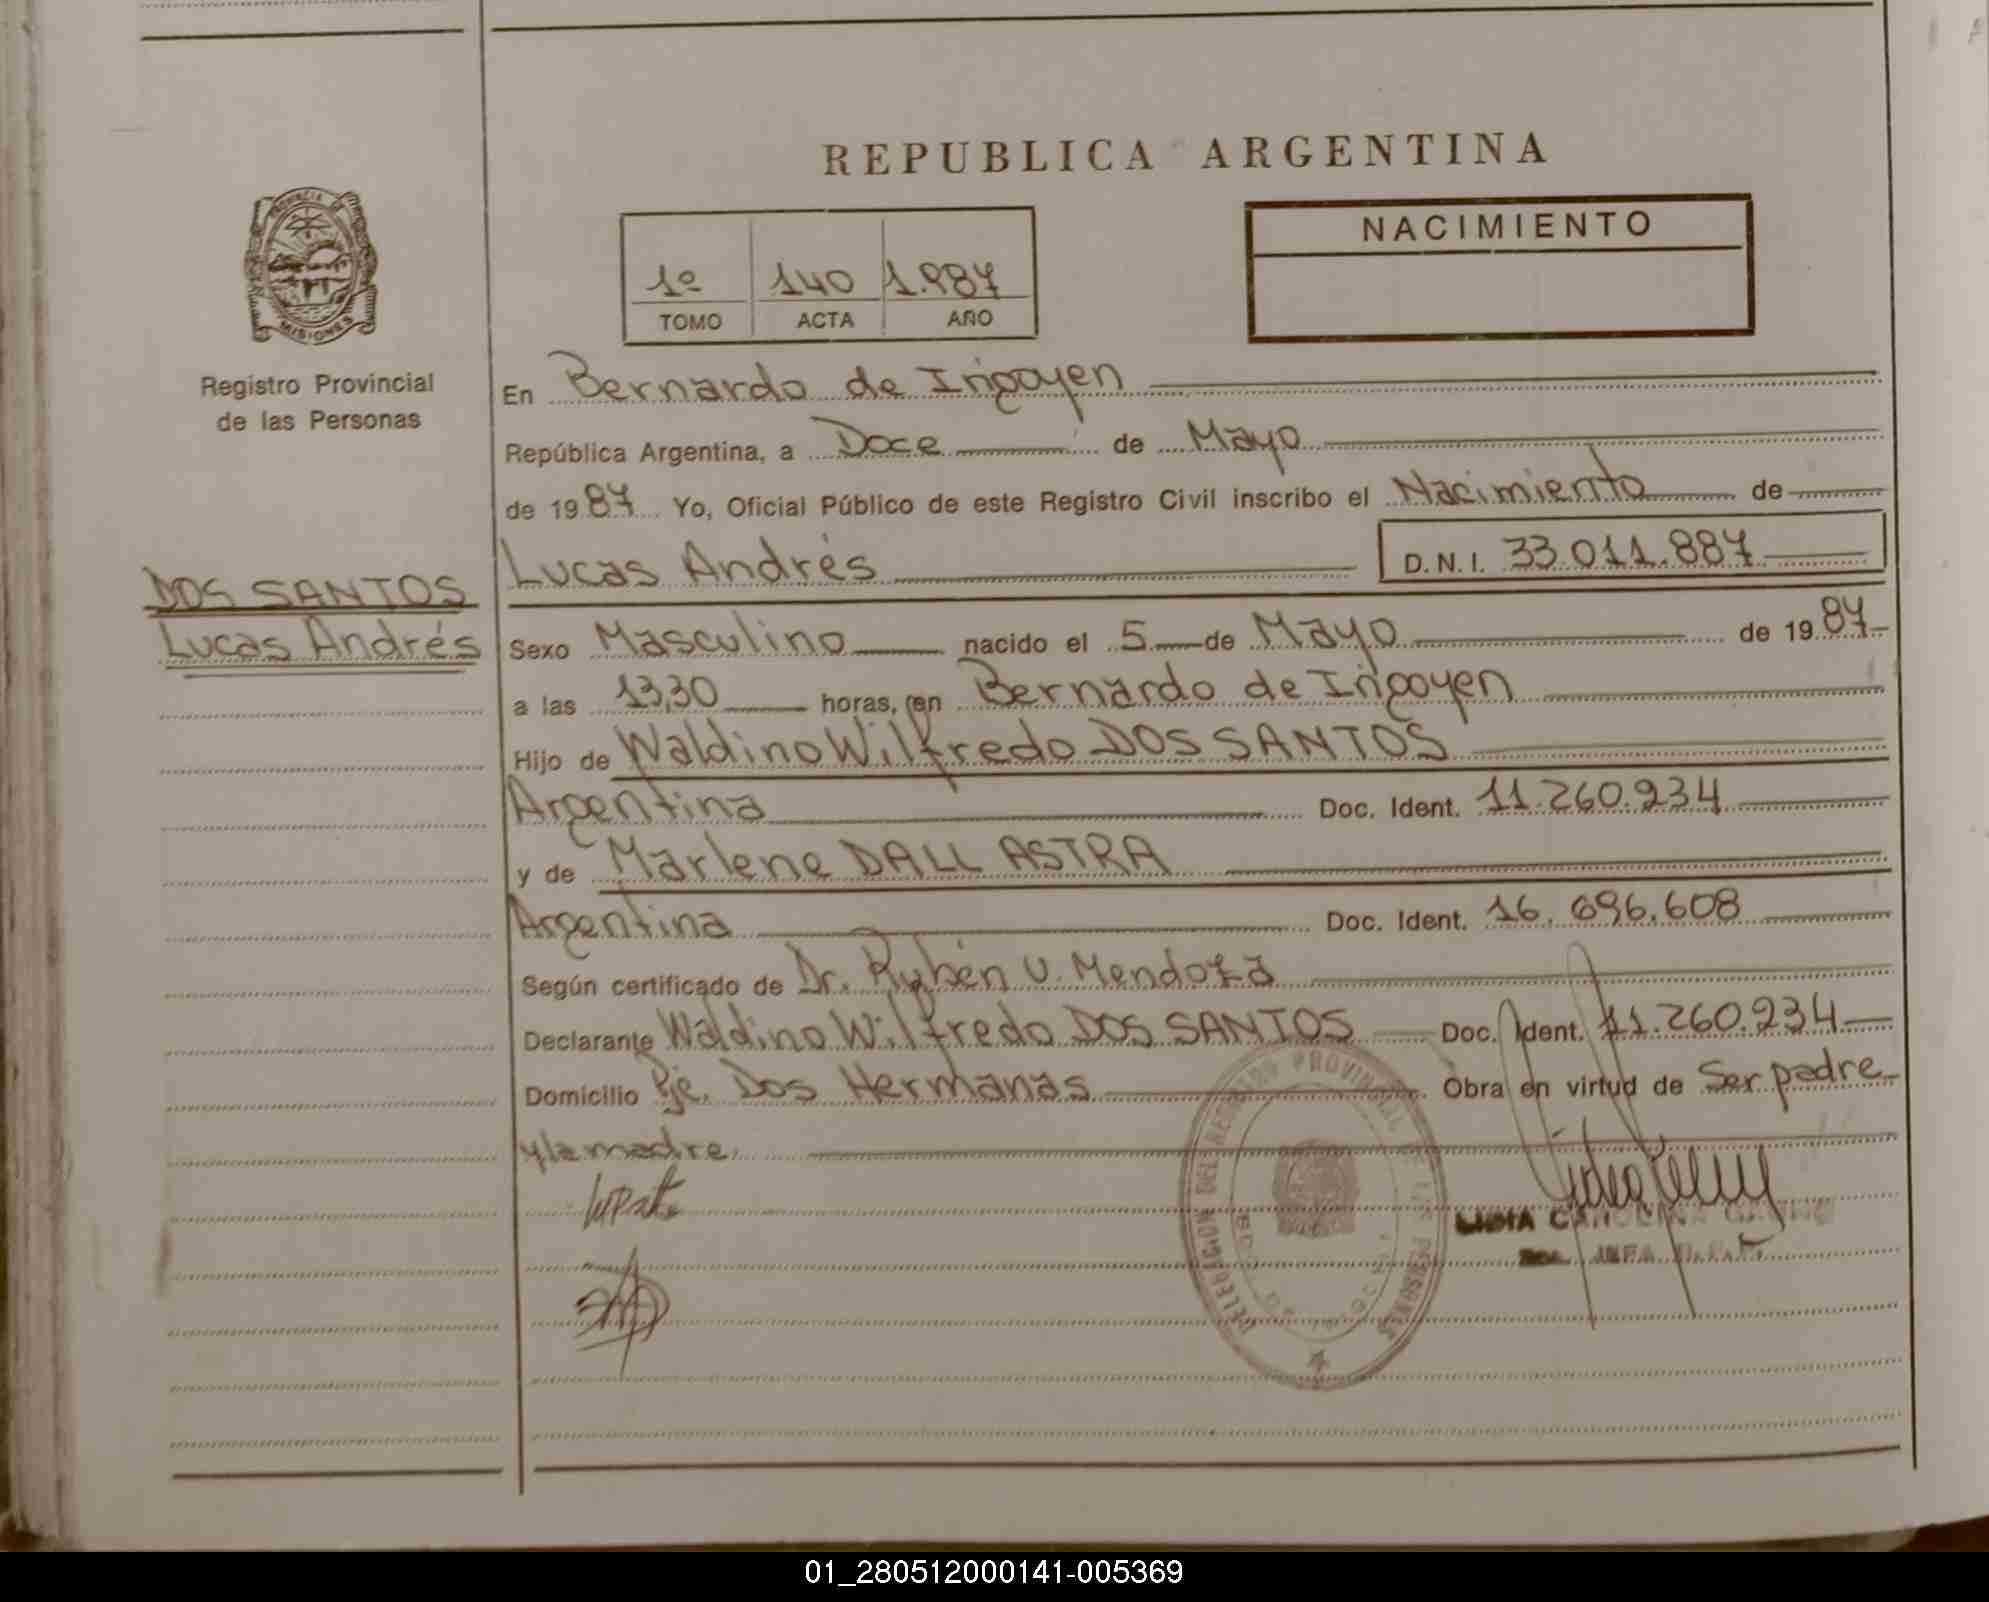 REPUBLICA ARGENTINA
PROVINCIA DE
MISIONES
Registro Provincial
de las Personas
NACIMIENTO
1º 140 1.987
TOMO ACTA AÑO
En Bernardo de Irigoyen
República Argentina, a Doce de Mayo
de 1987 Yo, Oficial Público de este Registro Civil inscribo el Nacimiento de
Lucas Andrés D.N.I. 33.011.887
DOS SANTOS
Lucas Andrés
Sexo Masculino nacido el 5 de Mayo de 1987
a las 13,30 horas, en Bernardo de Irigoyen
Hijo de Waldino Wilfredo DOS SANTOS
Argentina Doc. Ident. 11.260.934
y de Marlene DALL ASTRA
Argentina Doc. Ident. 16.696.608
Según certificado de Dr. Rubén U. Mendoza
Declarante Waldino Wilfredo DOS SANTOS Doc. Ident. 11.260.934
Domicilio Pje. Dos Hermanas Obra en virtud de Ser padre
y la madre
DELEGACION DEL REGISTRO PROVINCIAL DE LAS PERSONAS
LIDIA CAROLINA
01_280512000141-005369